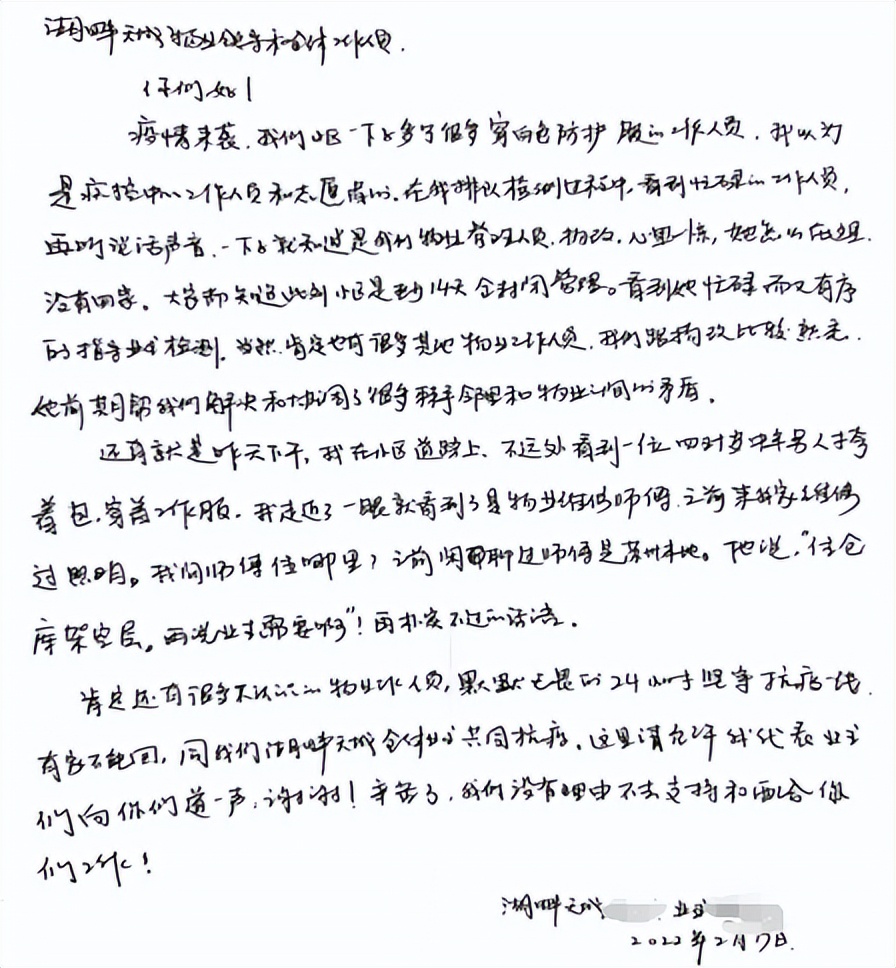 湖畔天城物业领导和全体工作人员.
你们好!
疫情来袭.我们小区一下子多了很多穿白色防护服的工作人员.我以为
是疾控中心工作人员和志愿者的.在我排队检测过程中,看到忙碌的工作人员,
再听说话声音.一下子就知道是我们物业管理人员.杨政.心里一惊,她怎么在这里.
没有回家。大家都知道此刻小区是要14天全封闭管理。看到她忙碌而又有序
的指导业主检测.当然.肯定也有很多其他物业工作人员.我们跟杨政比较熟悉.
她前期帮我们解决和协调了很多棘手邻里和物业之间的矛盾.
还有就是昨天下午,我在小区道路上、不远处看到一位四十多岁中年男人挎
着包.穿着工作服.我走近了一眼就看到了是物业维修师傅.之前来我家维修
过照明。我问师傅住哪里?之前闲聊聊过师傅是苏州本地。他说,"住仓
库架空层。再说业主需要啊"!再朴实不过的话语。
肯定还有很多不认识的物业工作人员,默默无畏的24小时坚守抗疫一线.
有家不能回,同我们湖畔天城全体业主共同抗疫.这里请允许我代表业主
们向你们道一声:谢谢!辛苦了,我们没有理由不去支持和配合你
们工作!
湖畔天城 业主
2022年2月7日.